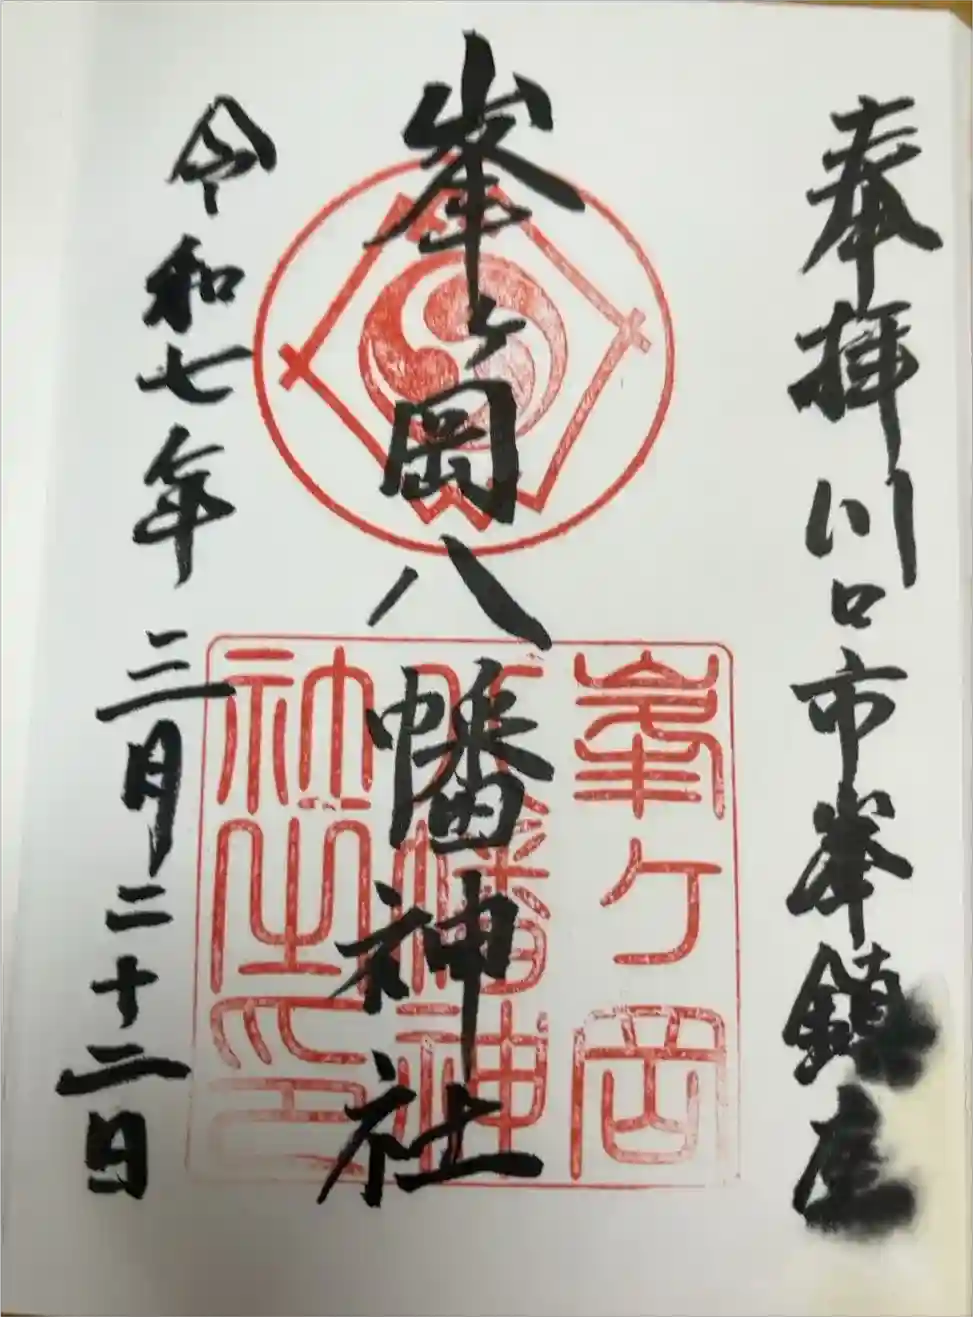 奉拝川口市峯鎮座
峯ヶ岡八幡神社
峯ヶ岡
八幡神
社之印
令和七年三月二十二日